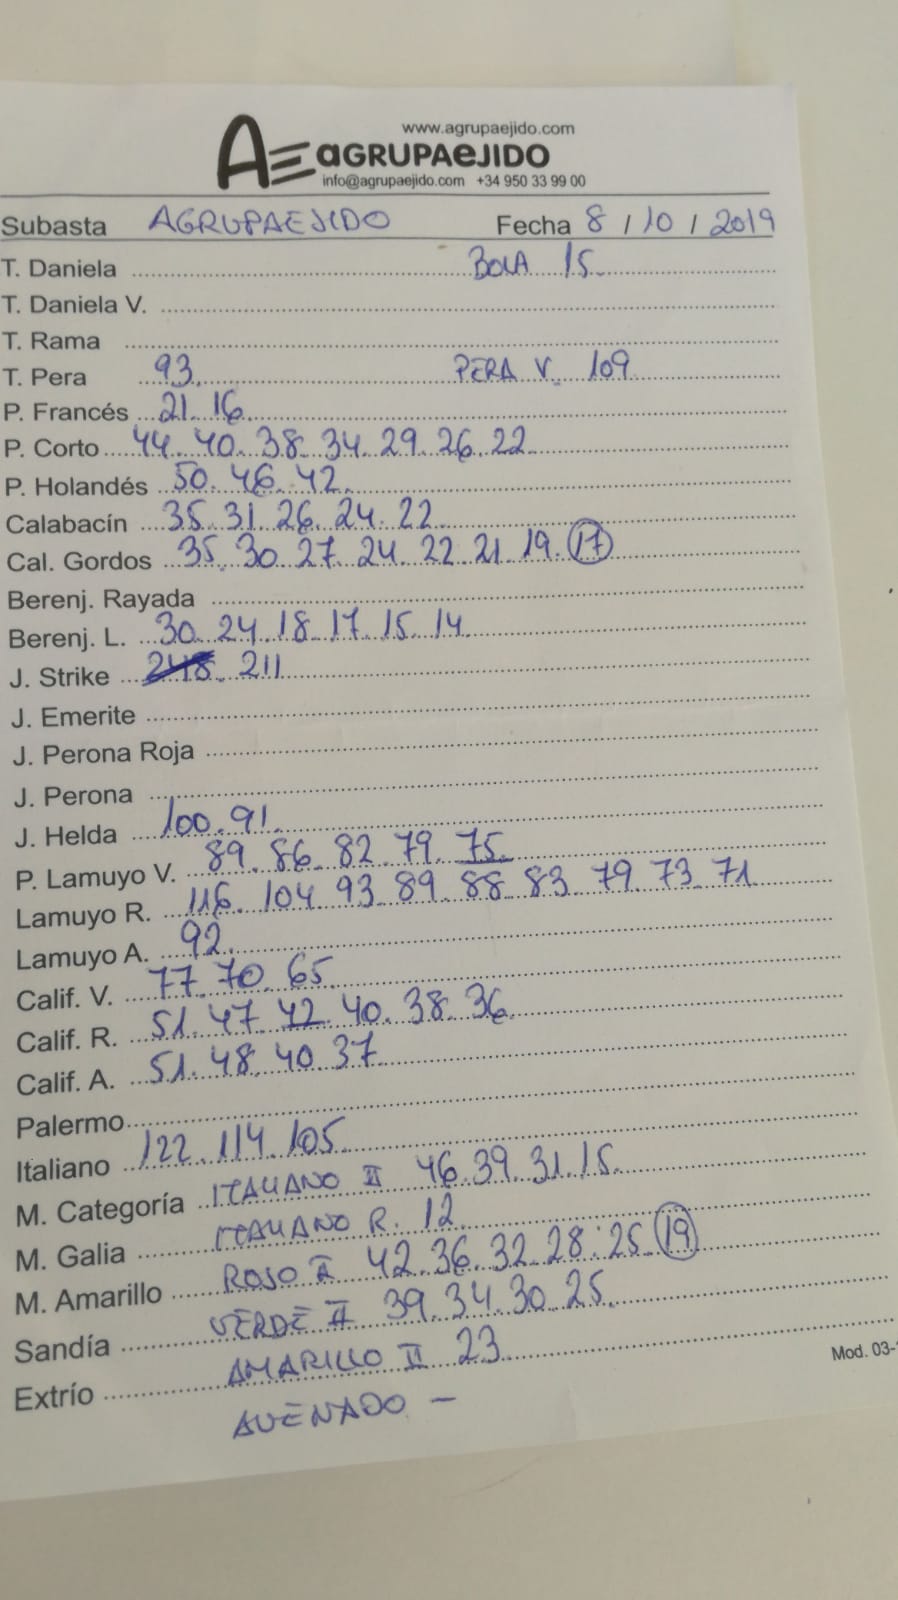 www.agrupaejido.com
AE aGRUPAeJIDO
info@agrupaejido.com +34 950 33 99 00
Subasta AGRUPAEJIDO Fecha 8 / 10 / 2019
T. Daniela BOLA 15.
T. Daniela V.
T. Rama
T. Pera 93. PERA V. 109
P. Francés 21. 16
P. Corto 44. 40. 38. 34. 29. 26. 22
P. Holandés 50. 46. 42.
Calabacín 35. 31. 26. 24. 22
Cal. Gordos 35. 30. 27. 24. 22. 21. 19. 17
Berenj. Rayada
Berenj. L. 30. 24. 18. 17. 15. 14
J. Strike 248. 211
J. Emerite
J. Perona Roja
J. Perona
J. Helda 100. 91.
P. Lamuyo V. 89. 86. 82. 79. 75.
Lamuyo R. 116. 104. 93. 89. 88. 83. 79. 73. 71
Lamuyo A. 92.
Calif. V. 77. 70. 65
Calif. R. 51. 47. 42. 40. 38. 36
Calif. A. 51. 48. 40. 37
Palermo
Italiano 122. 114. 105
M. Categoría ITALIANO II 46. 39. 31. 15.
M. Galia ITALIANO R. 12
M. Amarillo ROJO II 42. 36. 32. 28. 25. 19
Sandía VERDE II 39. 34. 30. 25.
Extrío AMARILLO II 23
AVENADO -
Mod. 03-